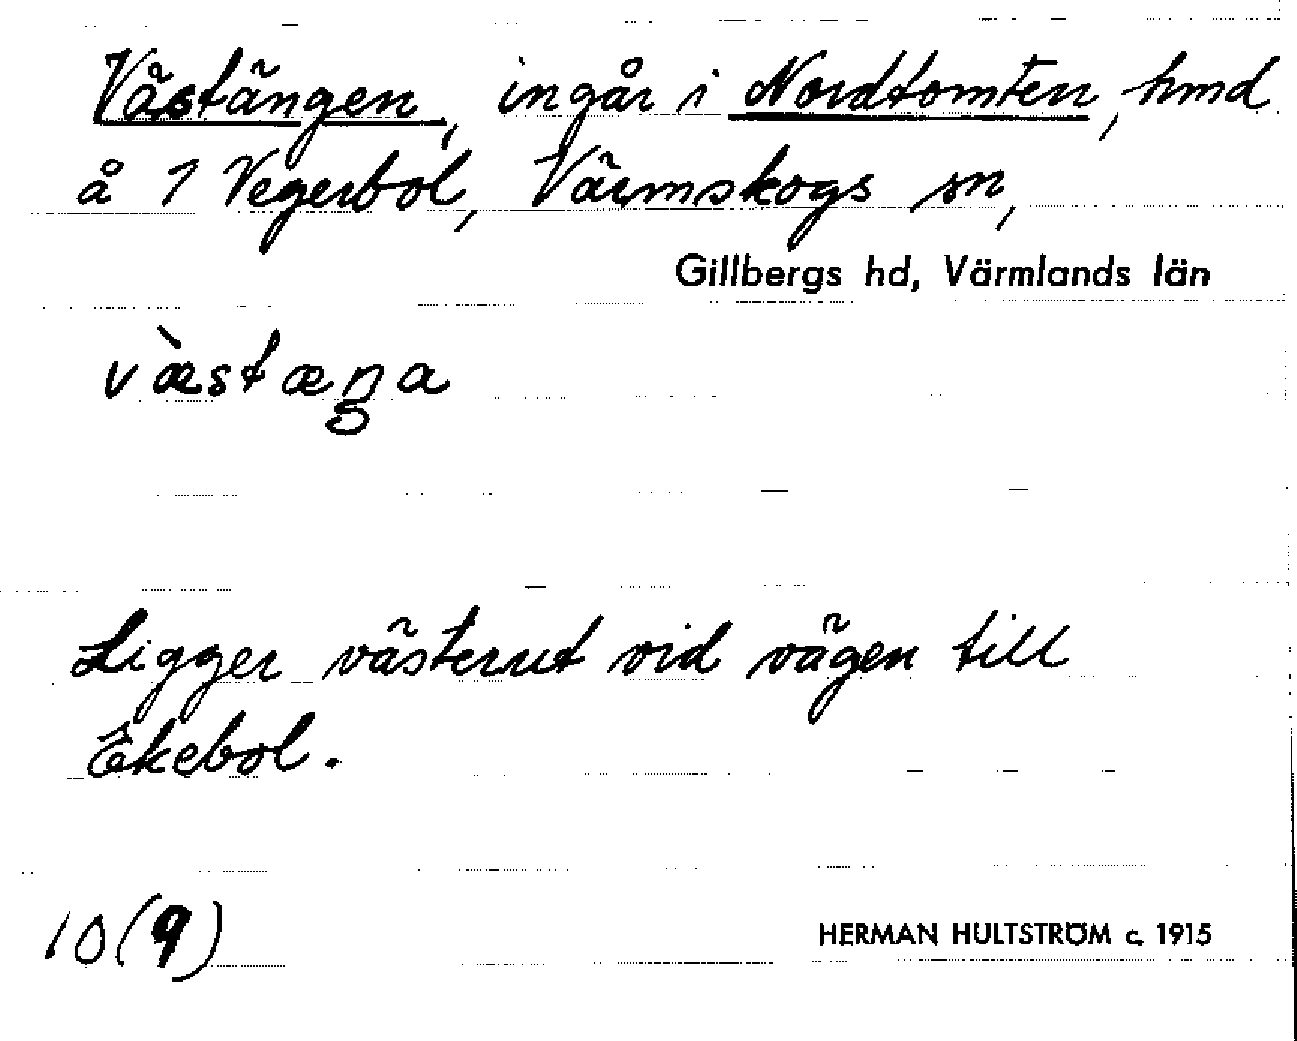 Västängen, ingår i Nordtomten, hmd
å 1 Vegerbol, Värmskogs sn,
Gillbergs hd, Värmlands län
væ̀stæŋa
Ligger västerut vid vägen till
Ekebol.
10(9)
HERMAN HULTSTRÖM c. 1915